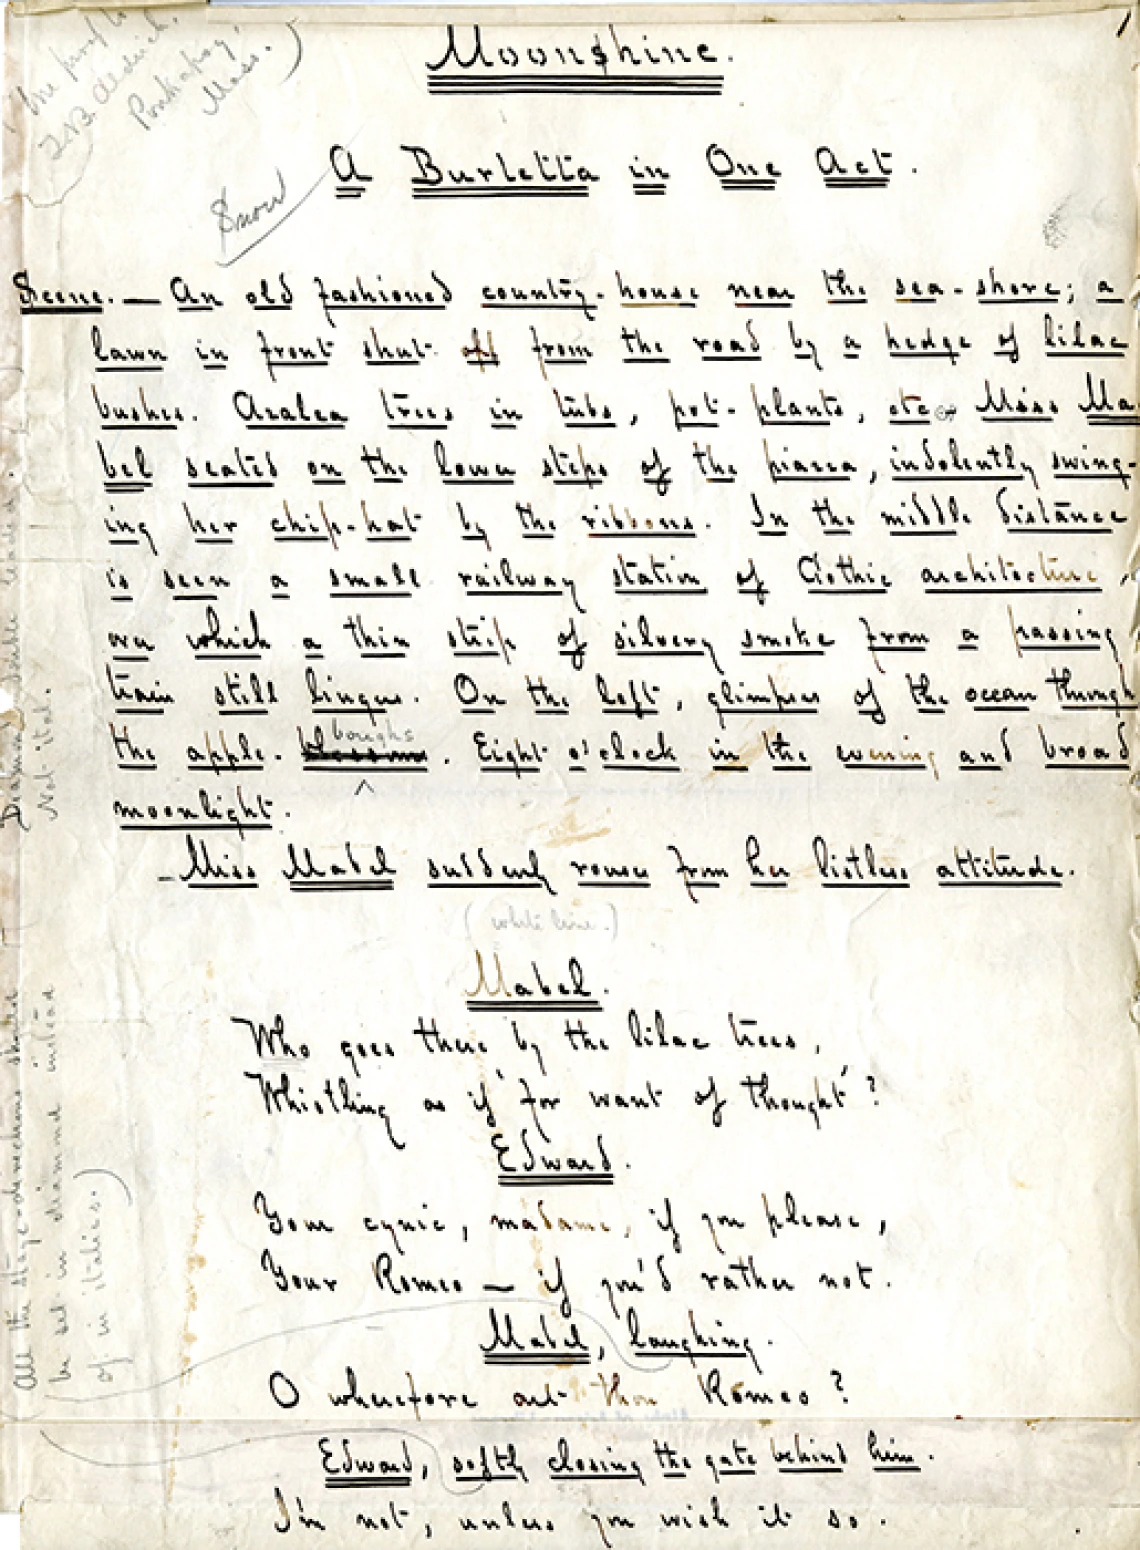 (The proof to
T.B. Aldrich,
Ponkapog,
Mass.)
1
Moonshine.
A Burletta in One Act.
Snow
Scene. — An old fashioned country-house near the sea-shore; a
lawn in front shut off from the road by a hedge of lilac
bushes. Azalea trees in tubs, pot-plants, etc. Miss Ma-
bel seated on the lower steps of the piazza, indolently swing-
ing her chip-hat by the ribbons. In the middle distance
is seen a small railway station of Gothic architecture,
over which a thin strip of silvery smoke from a passing
train still lingers. On the left, glimpses of the ocean through
the apple-blossoms boughs. Eight o'clock in the evening and broad
moonlight.
— Miss Mabel suddenly rouses from her listless attitude.
(white line.)
Mabel.
Who goes there by the lilac trees,
Whistling as if 'for want of thought'?
Edward.
Your cynic, madame, if you please,
Your Romeo — if you'd rather not.
Mabel, laughing.
O wherefore art thou Romeo?
Edward, softly closing the gate behind him.
I'm not, unless you wish it so.
Diamond, double leaded.
Not ital.
(All the stage-directions should
be set in diamond instead
of in italics.)